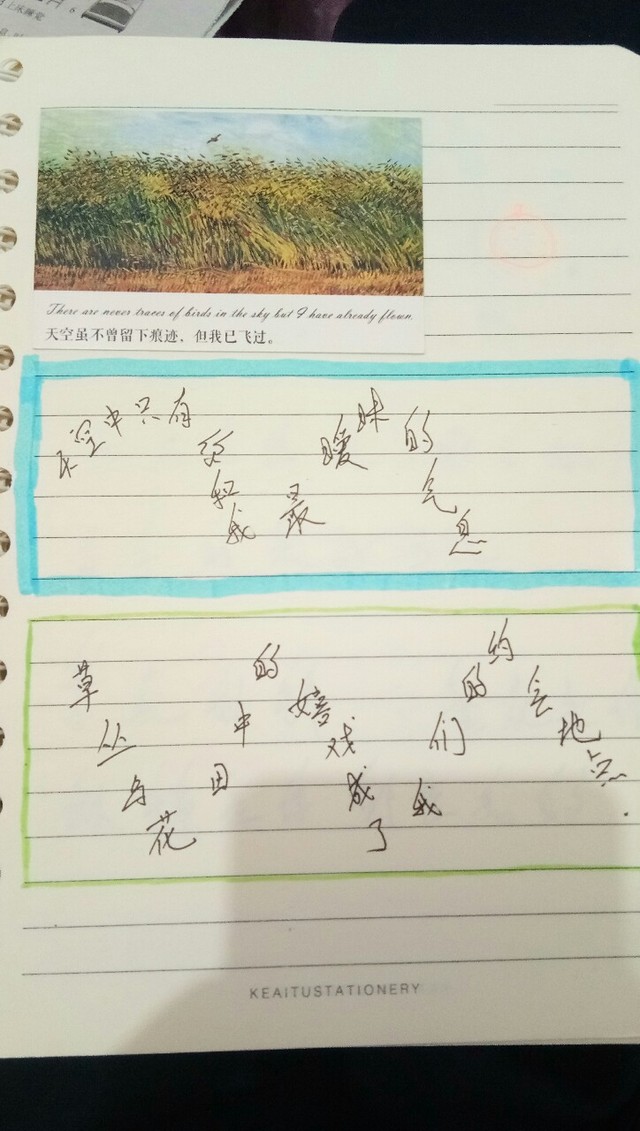 上床睡觉
There are never traces of birds in the sky but I have already flown.
天空虽不曾留下痕迹，但我已飞过。
天空中只有你和我最暧昧的气息
草丛与花田中的嬉戏成了我们的约会地点.
KEAITUSTATIONERY